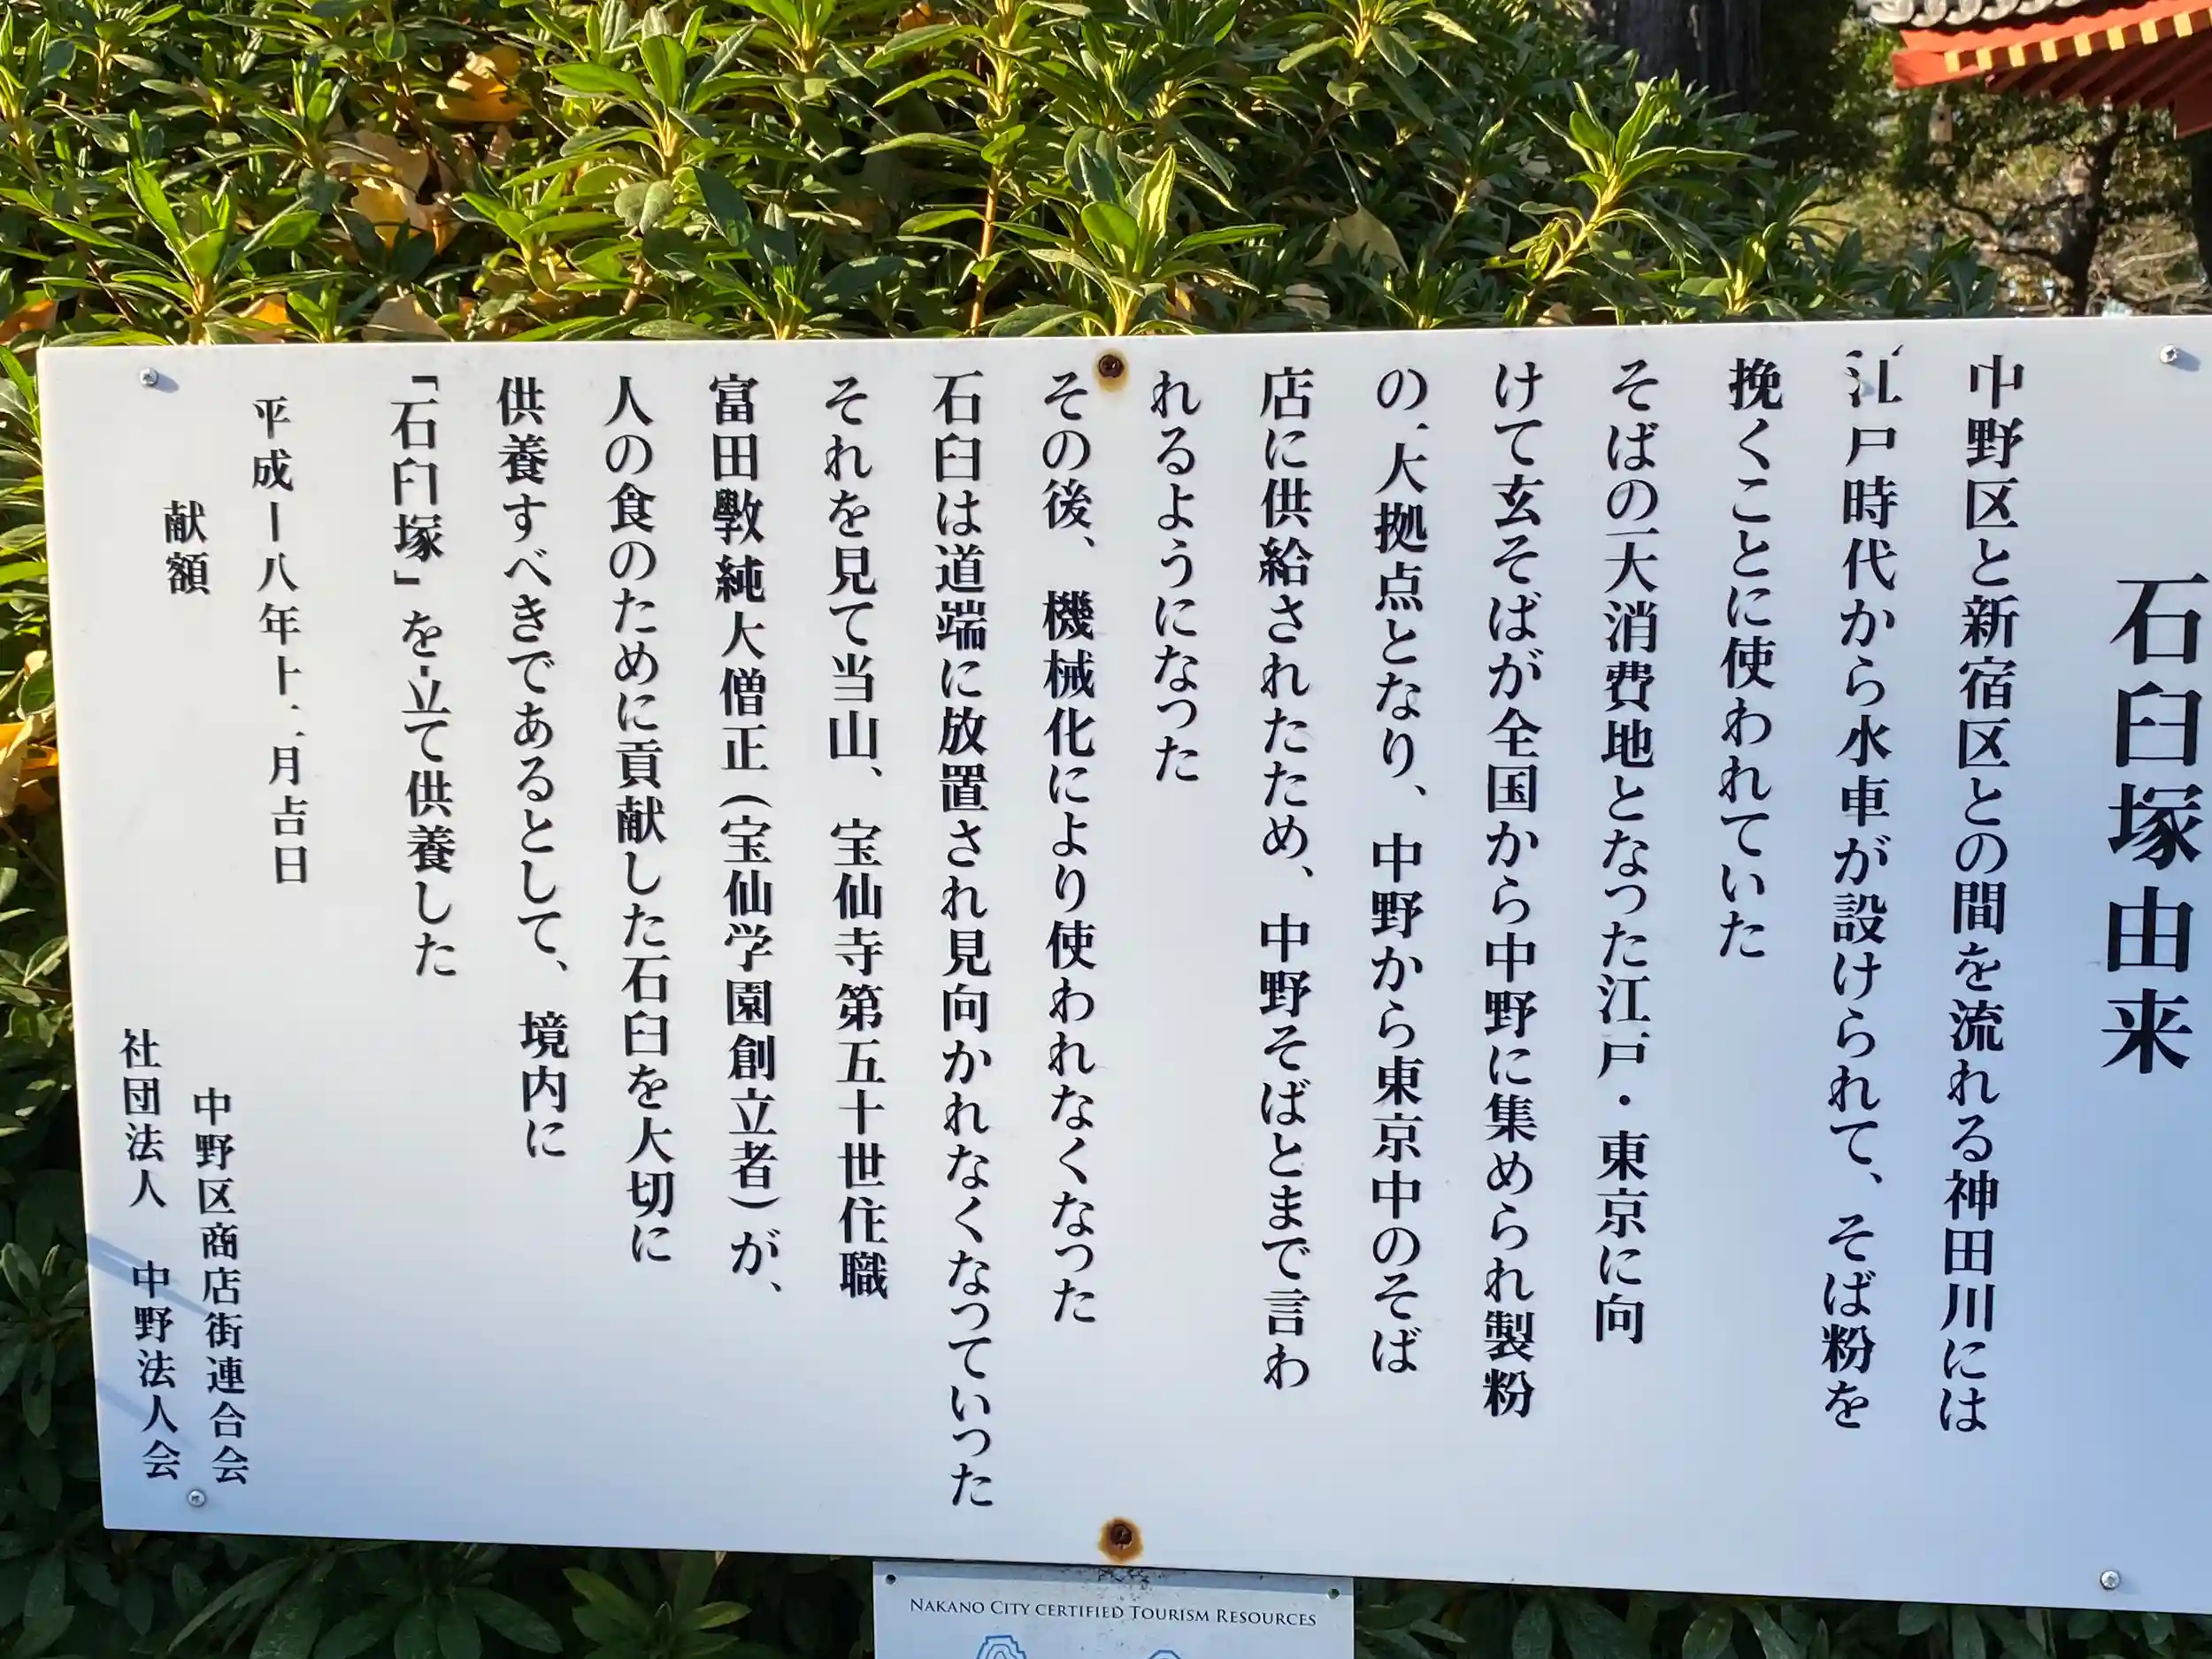 石臼塚由来
中野区と新宿区との間を流れる神田川には
江戸時代から水車が設けられて、そば粉を
挽くことに使われていた
そばの一大消費地となった江戸・東京に向
けて玄そばが全国から中野に集められ製粉
の一大拠点となり、中野から東京中のそば
店に供給されたため、中野そばとまで言わ
れるようになった
その後、機械化により使われなくなった
石臼は道端に放置され見向かれなくなっていった
それを見て当山、宝仙寺第五十世住職
富田斅純大僧正(宝仙学園創立者)が、
人の食のために貢献した石臼を大切に
供養すべきであるとして、境内に
「石臼塚」を立て供養した
平成十八年十二月吉日
献額
中野区商店街連合会
社団法人 中野法人会
NAKANO CITY CERTIFIED TOURISM RESOURCES